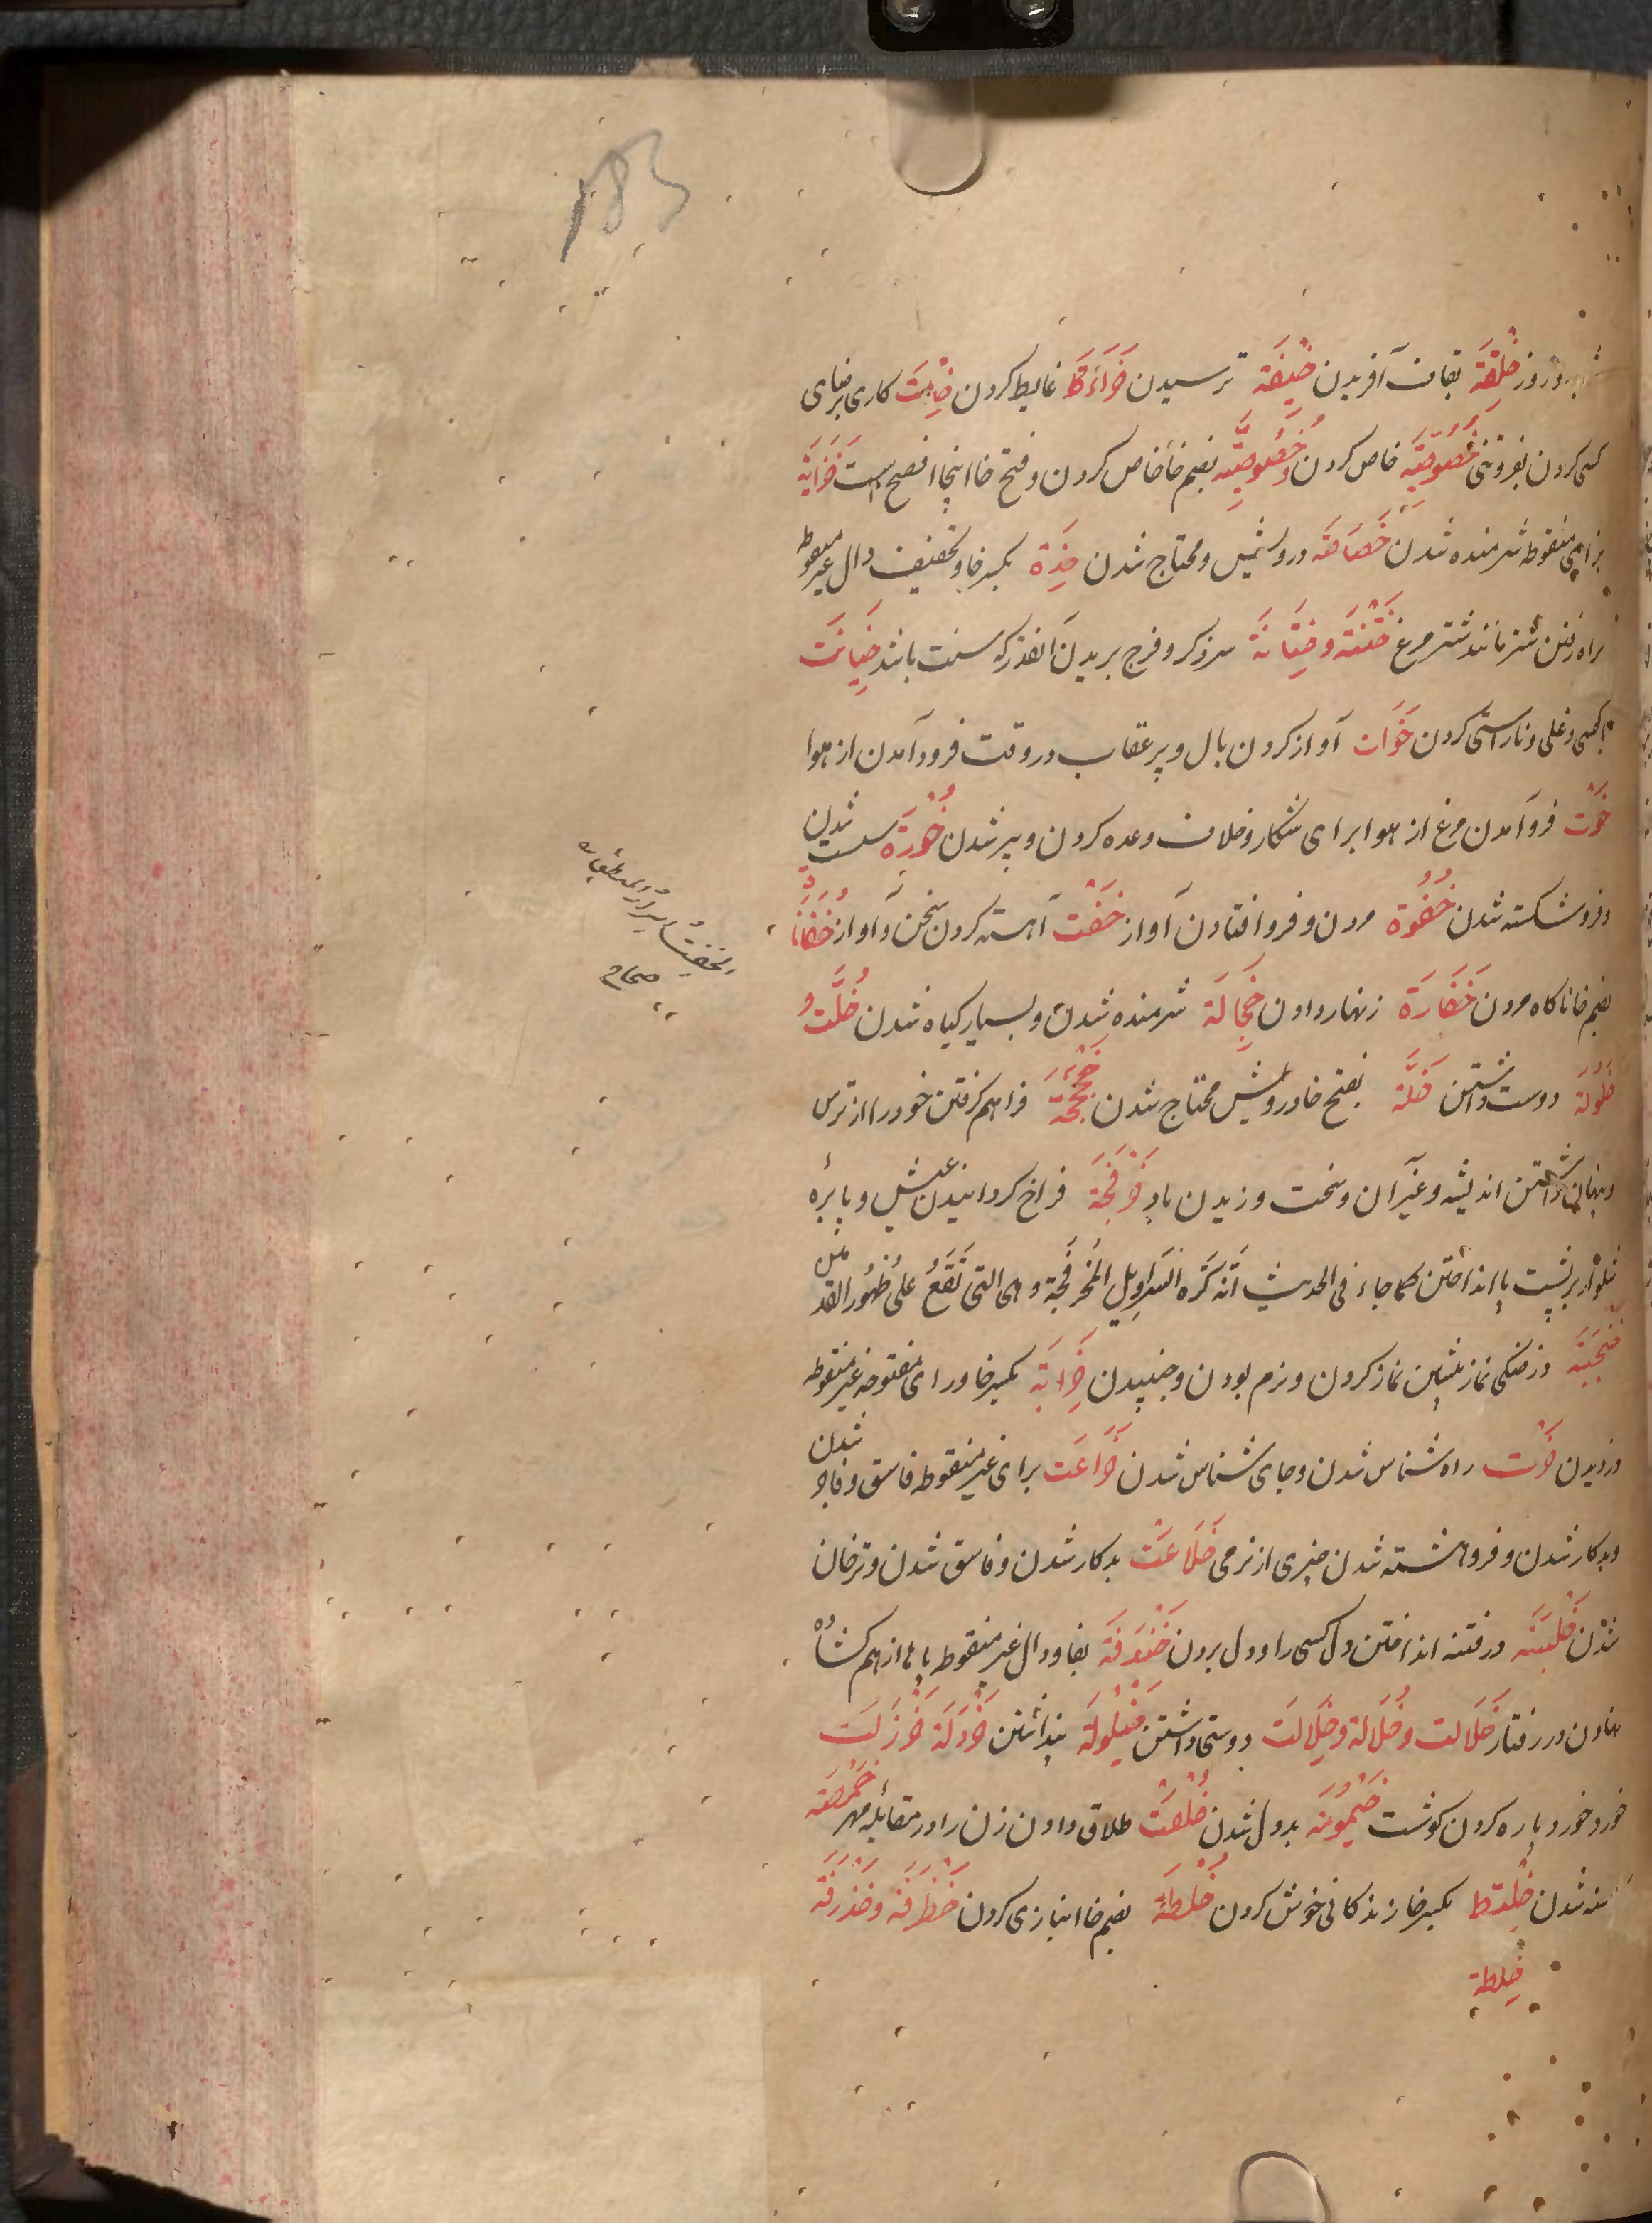 183
شب و روز خِلْقَة بقاف آفریدن خِیْفَة ترسیدن خَرَاءَة غایط کردن خِدْمَت کاری برضای
کسی کردن بفروتنی خَصُوصِیَّة خاص کردن و خُصُوصِیَّة بضم خا خاص کردن و فتح خا اینجا افصح است خَزَایَة
بزای منقوطه شرمنده شدن خَصَاصَة درویش و محتاج شدن خِدَة بکسر خا و تخفیف دال غیر منقوطه
براه رفتن شتر مانند شتر مرغ خَتْنَة و خِتَانَة سر ذکر و فرج بریدن آنقدر که سنت باشد خِیَانَت
با کسی دغلی و ناراستی کردن خَوَات آواز کردن بال و پر عقاب در وقت فرود آمدن از هوا
خَوْت فرو آمدن مرغ از هوا برای شکار و خلاف وعده کردن و پیر شدن خُوْرَة سست شدن
و فرو شکسته شدن خُفُوة مردن و فرو افتادن آواز خَفْت آهسته کردن سخن و آواز خُفَاتًا
بضم خا ناکاه مردن خَفَارَة زنهار دادن خَجَالَة شرمنده شدن و بسیار کیاه شدن خُلَّت و
خُلُولَة دوست داشتن خَلَّة بفتح خا درویش محتاج شدن خَجْخَجَة فراهم گرفتن خود را از ترس
و پنهان داشتن اندیشه و غیر آن و سخت وزیدن باد خَرْفَجَة فراخ کردانیدن عیش و بابره
شلوار بر پشت پا انداختن کما جاء فی الحدیث اَنَّه کَرِهَ السَّراوِیل المُخَرْفَجَة و هی التی تَقَعُ علی ظُهُور القدمین
در خنکی نماز پشین نماز کردن و نرم بودن و جنبیدن خِرَابَة بکسر خا و رای مفتوحه غیر منقوطه
دزدیدن خَرْت راه شناس شدن و جای شناس شدن خَرَاعَت برای غیر منقوطه فاسق و فاجر شدن
و بدکار شدن و فروهشته شدن چیزی از نرمی خَلَاعَت بدکار شدن و فاسق شدن و ترخان
شدن خَلْبَتَه در فتنه انداختن و دل کسی را و دل بردن خَنْدَفَة بفا و دال غیر منقوطه پا از هم کشاده
نهادن در رفتار خَلَالت و خُلَالة و خِلَالت دوستی داشتن خَیْلُولَة پنداشتن خَرْدَلَة خَرْزَلَت
خورد خورد پاره کردن کوشت خَیْمُومَة بددل شدن خُلْعَت طلاق دادن زن را در مقابله مهر خَمْصَة
کرسنه شدن خِلْطَة بکسر خا زندکانی خوش کردن خُلْطَة بضم خا انبازی کردن خَظْرَفَة و خَذْرَفَة
خلطة
صحاح